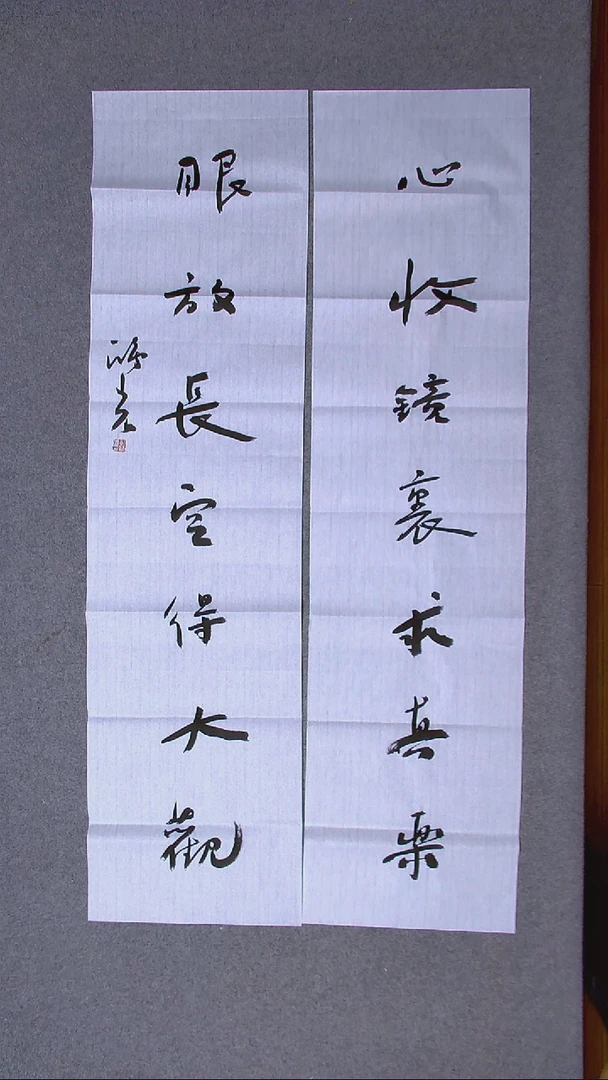 心收鏡裏求真樂
眼放長空得大觀